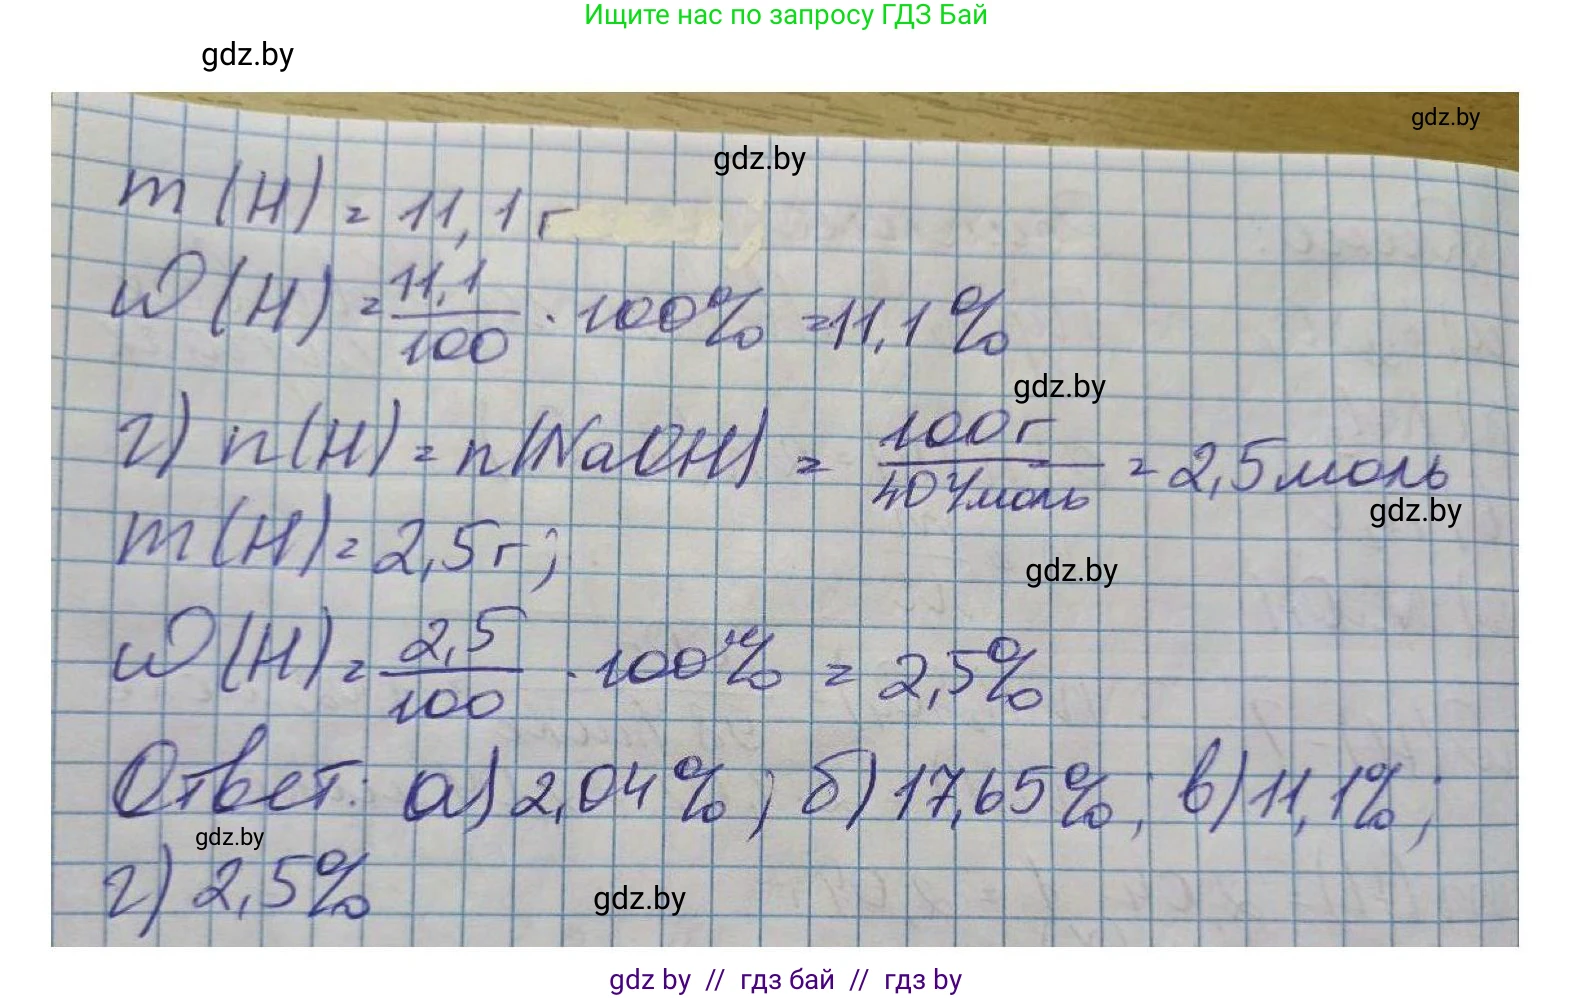 Ищите нас по запросу ГДЗ Бай
gdz.by
gdz.by
gdz.by
m(H) = 11,1г
ω(H) = 11,1/100 · 100% = 11,1%
gdz.by
г) n(H) = n(NaOH) = 100г/40г/моль = 2,5 моль
gdz.by
m(H) = 2,5г;
gdz.by
ω(H) = 2,5/100 · 100% = 2,5%
Ответ: а) 2,04%; б) 17,65%; в) 11,1%;
gdz.by
г) 2,5%
gdz.by
gdz by // гдз бай // гдз by